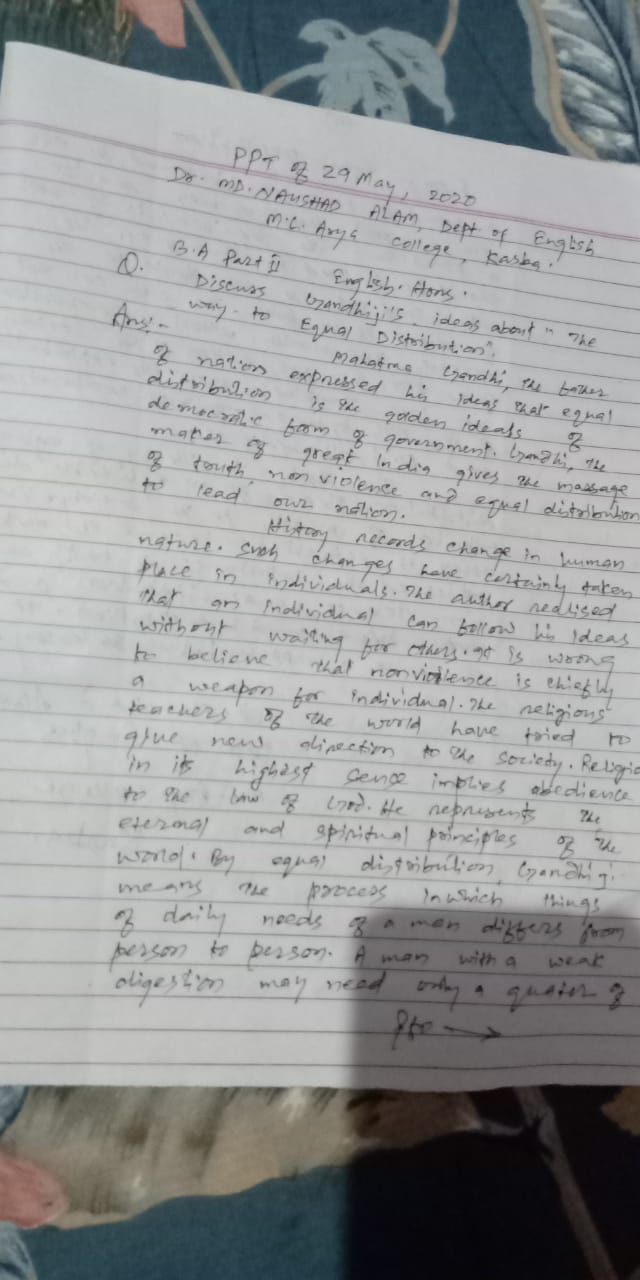 PPT of 29 May, 2020
Dr. MD. NAUSHAD ALAM, Dept of English
M.L. Arya College, Kasba.
B.A Part II English. Hons.
Q. Discuss Gandhiji's ideas about "The
way to Equal Distribution".
Ans:- Mahatma Gandhi, the father
of nation expressed his ideas that equal
distribution is the golden ideals of
democratic form of government. Gandhi, the
maker of great India gives the massage
of truth, non violence and equal distribution
to lead our nation.
History records change in human
nature. Such changes have certainly taken
place in individuals. The author realised
that an individual can follow his ideas
without waiting for others. It is wrong
to believe that nonviolence is chiefly
a weapon for individual. The religious
teachers of the world have tried to
give new direction to the society. Religio
in its highest sense implies obedience
to the law of God. He represents the
eternal and spiritual principles of the
world. By equal distribution, Gandhiji
means the process in which things
of daily needs of a man differs from
person to person. A man with a weak
digestion may need only a quater of
Pto →